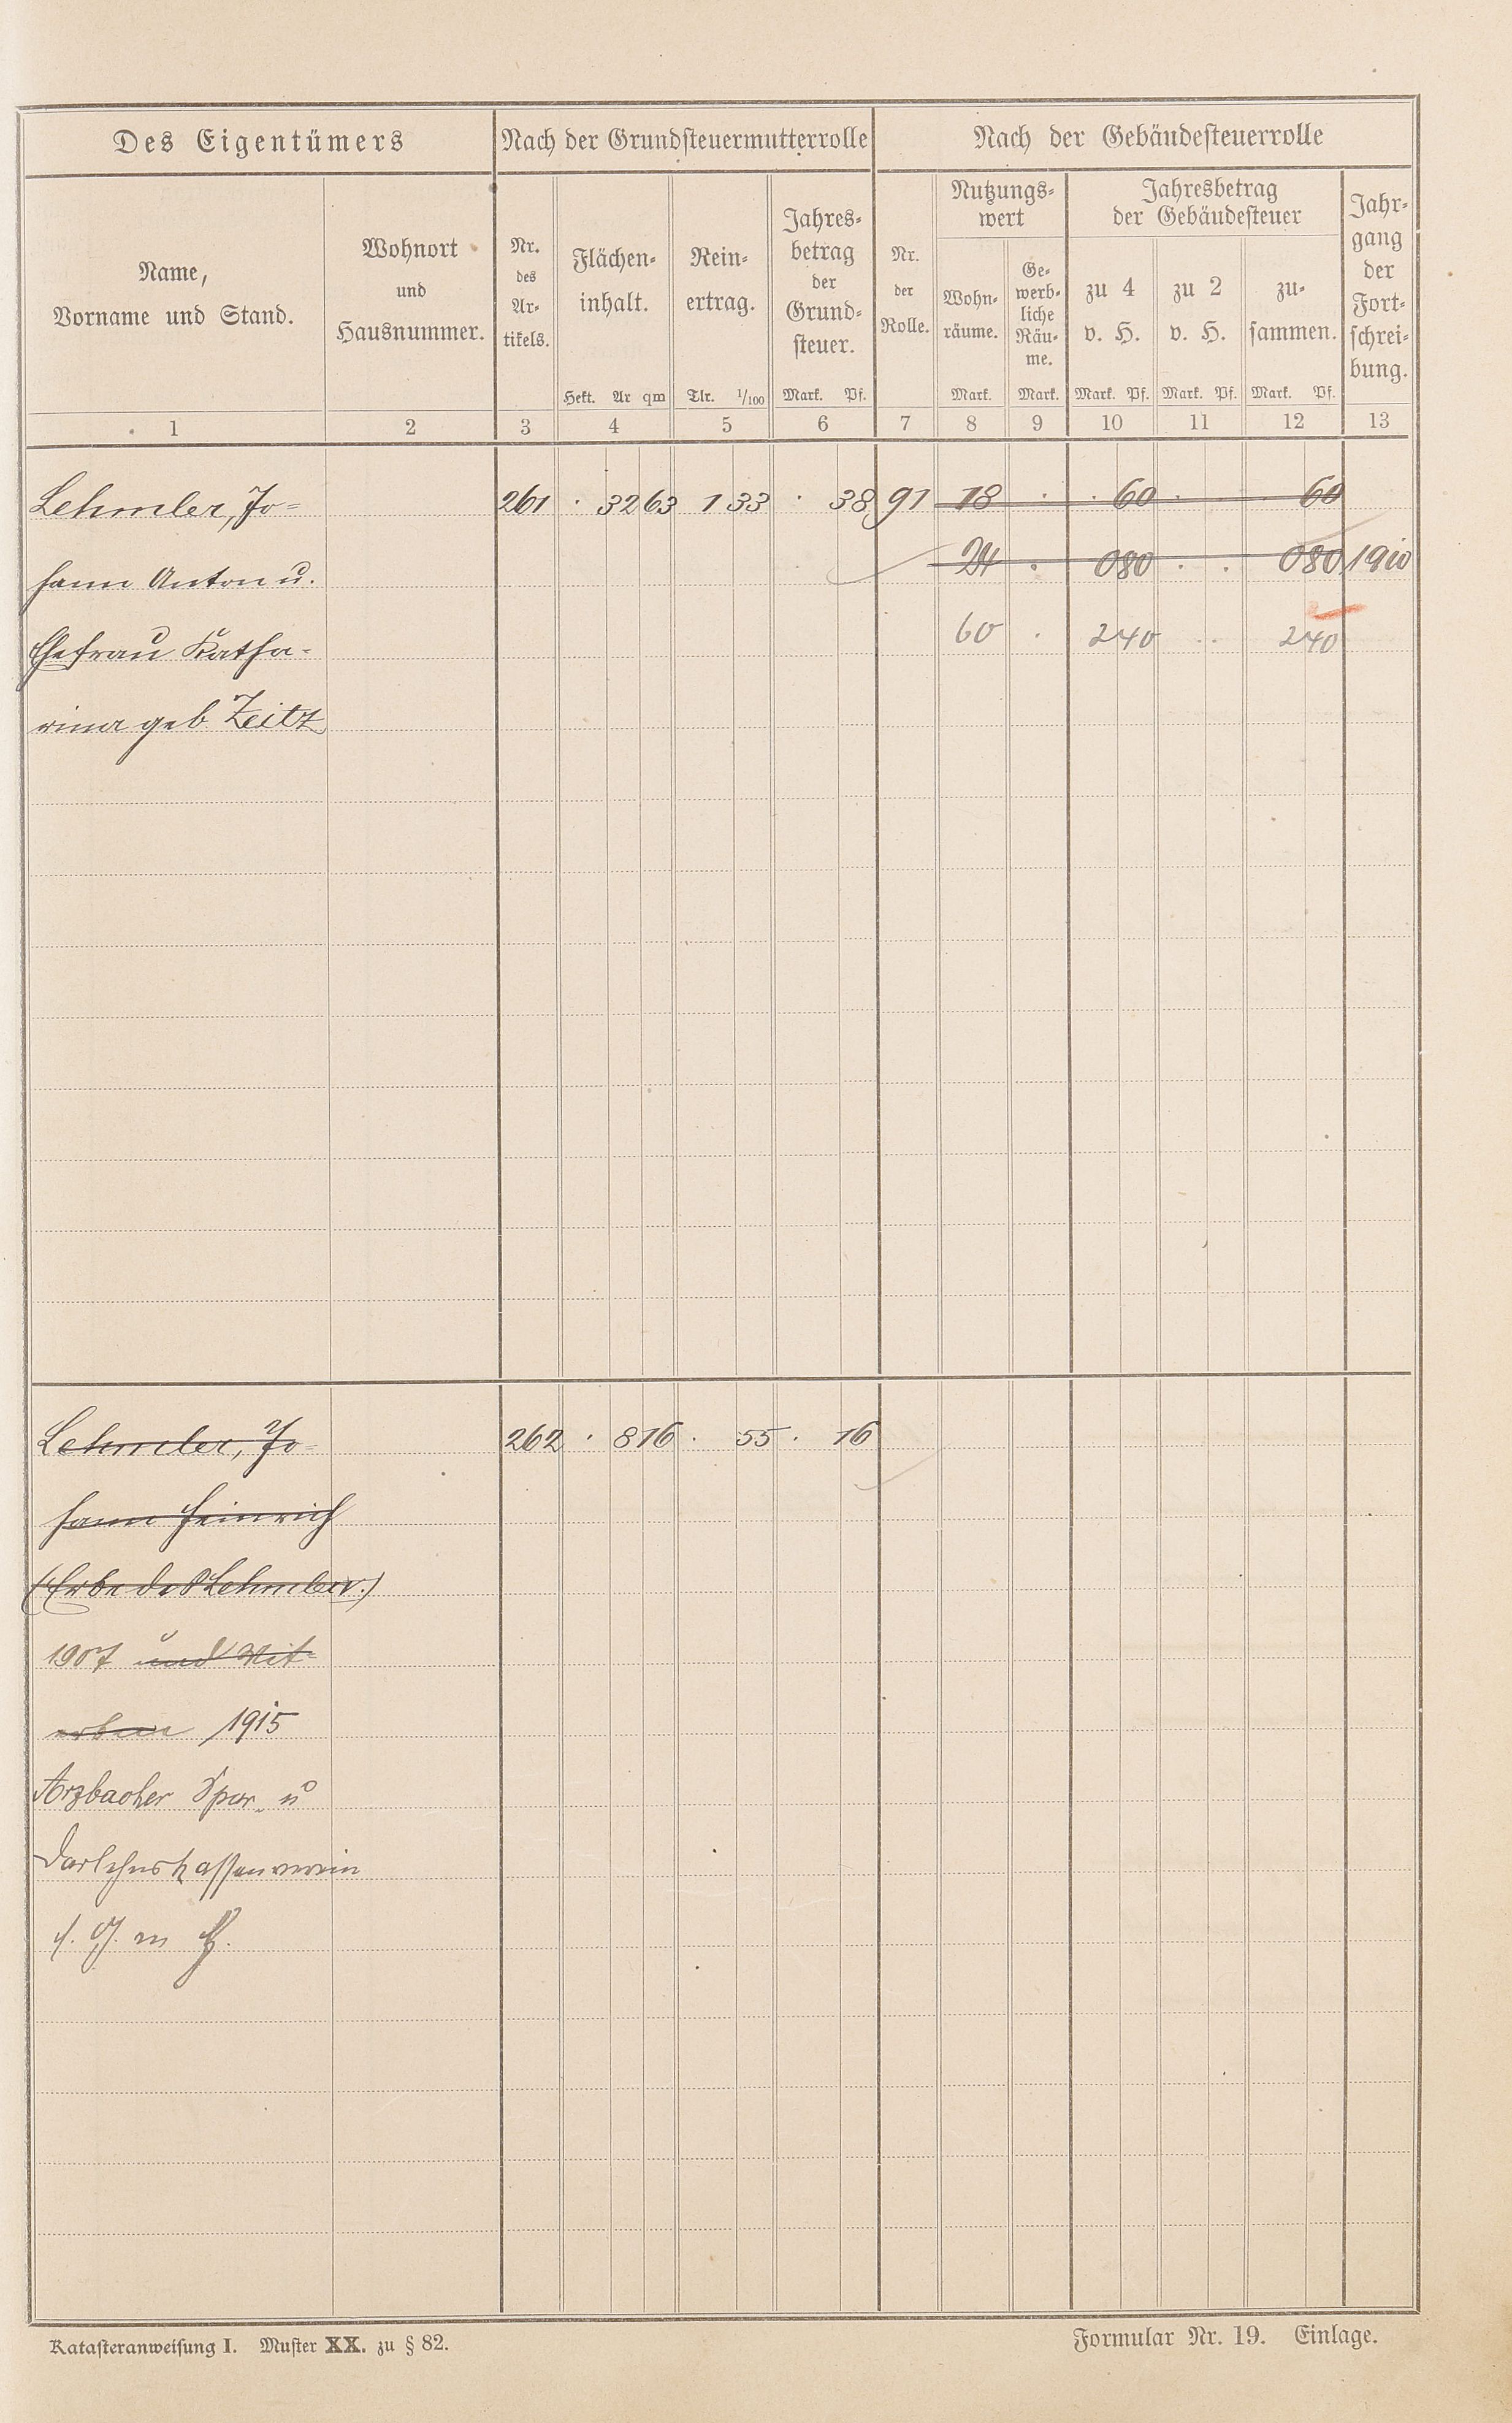 Des Eigentümers
Nach der Grundsteuermutterrolle
Nach der Gebäudesteuerrolle
Name,
Vorname und Stand.
Wohnort
und
Hausnummer.
Nr.
des
Ar-
tikels.
Flächen-
inhalt.
Hekt. Ar qm
Rein-
ertrag.
Tlr. 1/100
Jahres-
betrag
der
Grund-
steuer.
Mark. Pf.
Nr.
der
Rolle.
Nutzungs-
wert
Wohn-
räume.
Mark.
Ge-
werb-
liche
Räu-
me.
Mark.
Jahresbetrag
der Gebäudesteuer
zu 4
v. H.
Mark. Pf.
zu 2
v. H.
Mark. Pf.
zu-
sammen.
Mark. Pf.
Jahr-
gang
der
Fort-
schrei-
bung.
1 2 3 4 5 6 7 8 9 10 11 12 13
Lehmler, Jo- 261 · 32 63 1 33 · 38 91 18 · · 60 · 60
hann Anton u. 24 · 0 80 · · 0 80 1910
Ehefrau Katha- 60 · 2 40 · · 2 40
rina geb. Zeitz
Lehmler, Jo- 262 · 8 16 · 55 · 16
hann Heinrich
(Erbe des Lehmler.)
1907 und Mit-
erben 1915
Arzbacher Spar- u
Darlehnskassenverein
m
Katasteranweisung I. Muster XX. zu § 82.
Formular Nr. 19. Einlage.